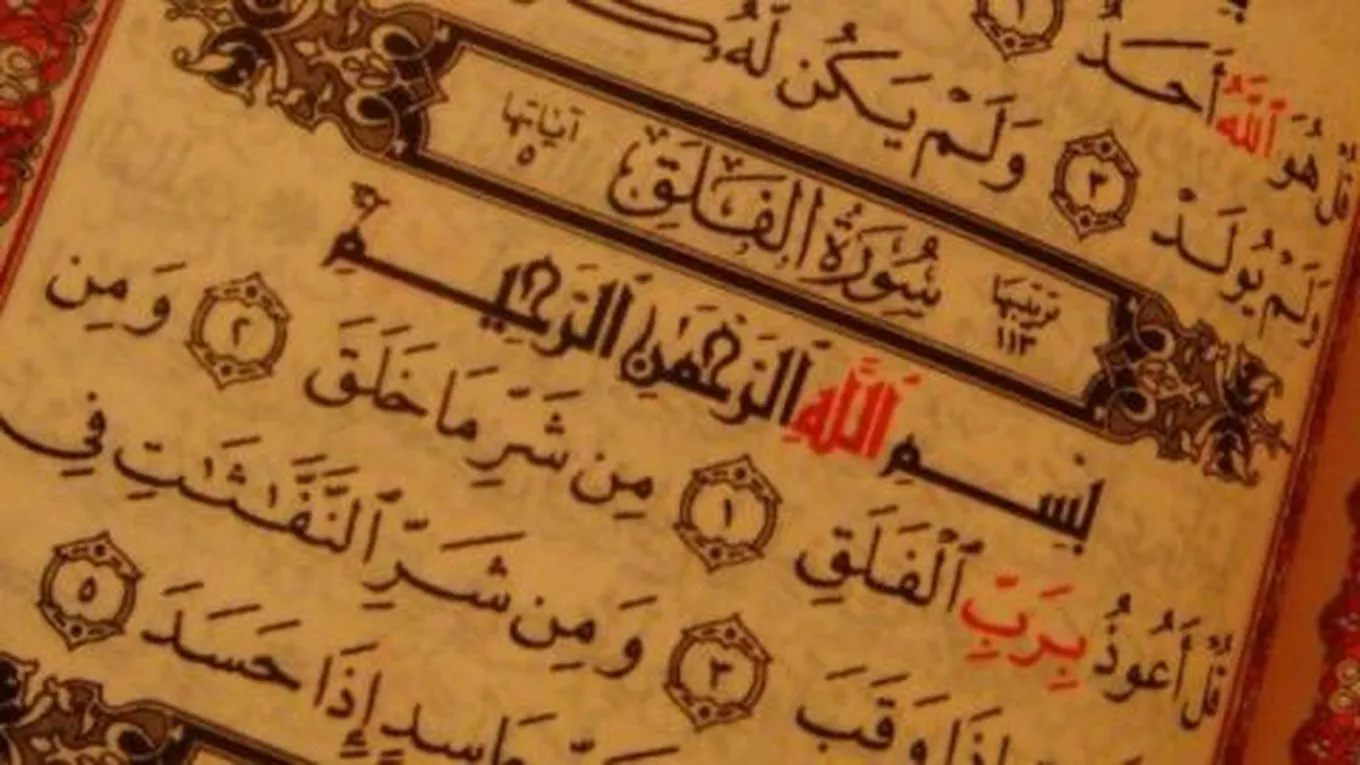 قُلْ هُوَ ٱللَّهُ أَحَدٌ ١
وَلَمْ يُولَدْ ٣ وَلَمْ يَكُن لَّهُۥ
ترتيبها ١١٣ سُورَةُ الفَلَقِ آياتها ٥
بِسْمِ اللَّهِ الرَّحْمَٰنِ الرَّحِيمِ
قُلْ أَعُوذُ بِرَبِّ ٱلْفَلَقِ ١ مِن شَرِّ مَا خَلَقَ ٢ وَمِن
إِذَا وَقَبَ ٣ وَمِن شَرِّ ٱلنَّفَّٰثَٰتِ فِي
حَاسِدٍ إِذَا حَسَدَ ٥